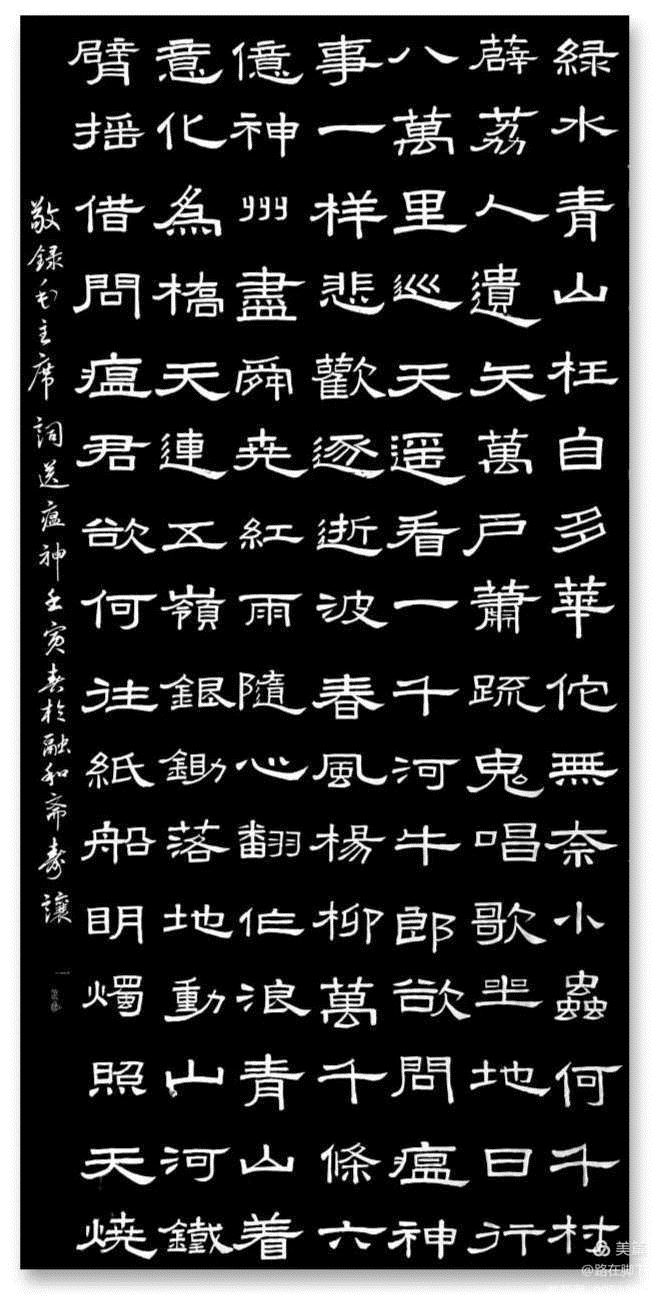 緑水青山枉自多華佗無奈小蟲何千村
薜荔人遺矢萬戶蕭疏鬼唱歌坐地日行
八萬里巡天遥看一千河牛郎欲問瘟神
事一样悲歡逐逝波春風楊柳萬千條六
億神州盡舜尭紅雨隨心翻作浪青山着
意化為橋天連五嶺銀鋤落地動山河鐵
臂摇借問瘟君欲何往紙船明燭照天燒
敬録毛主席詞送瘟神壬寅春於融和斎寿讓
美篇
@路在脚下